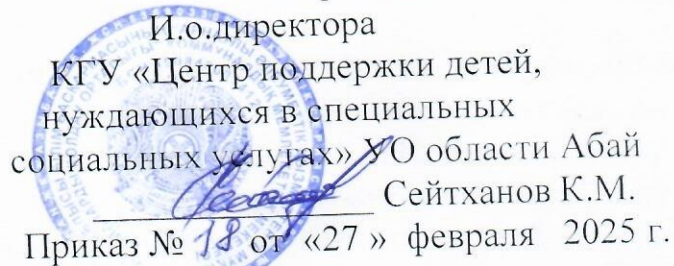 И.о.директора
КГУ «Центр поддержки детей,
нуждающихся в специальных
социальных услугах» УО области Абай
Сейтханов К.М.
Приказ № 18 от «27 » февраля 2025 г.